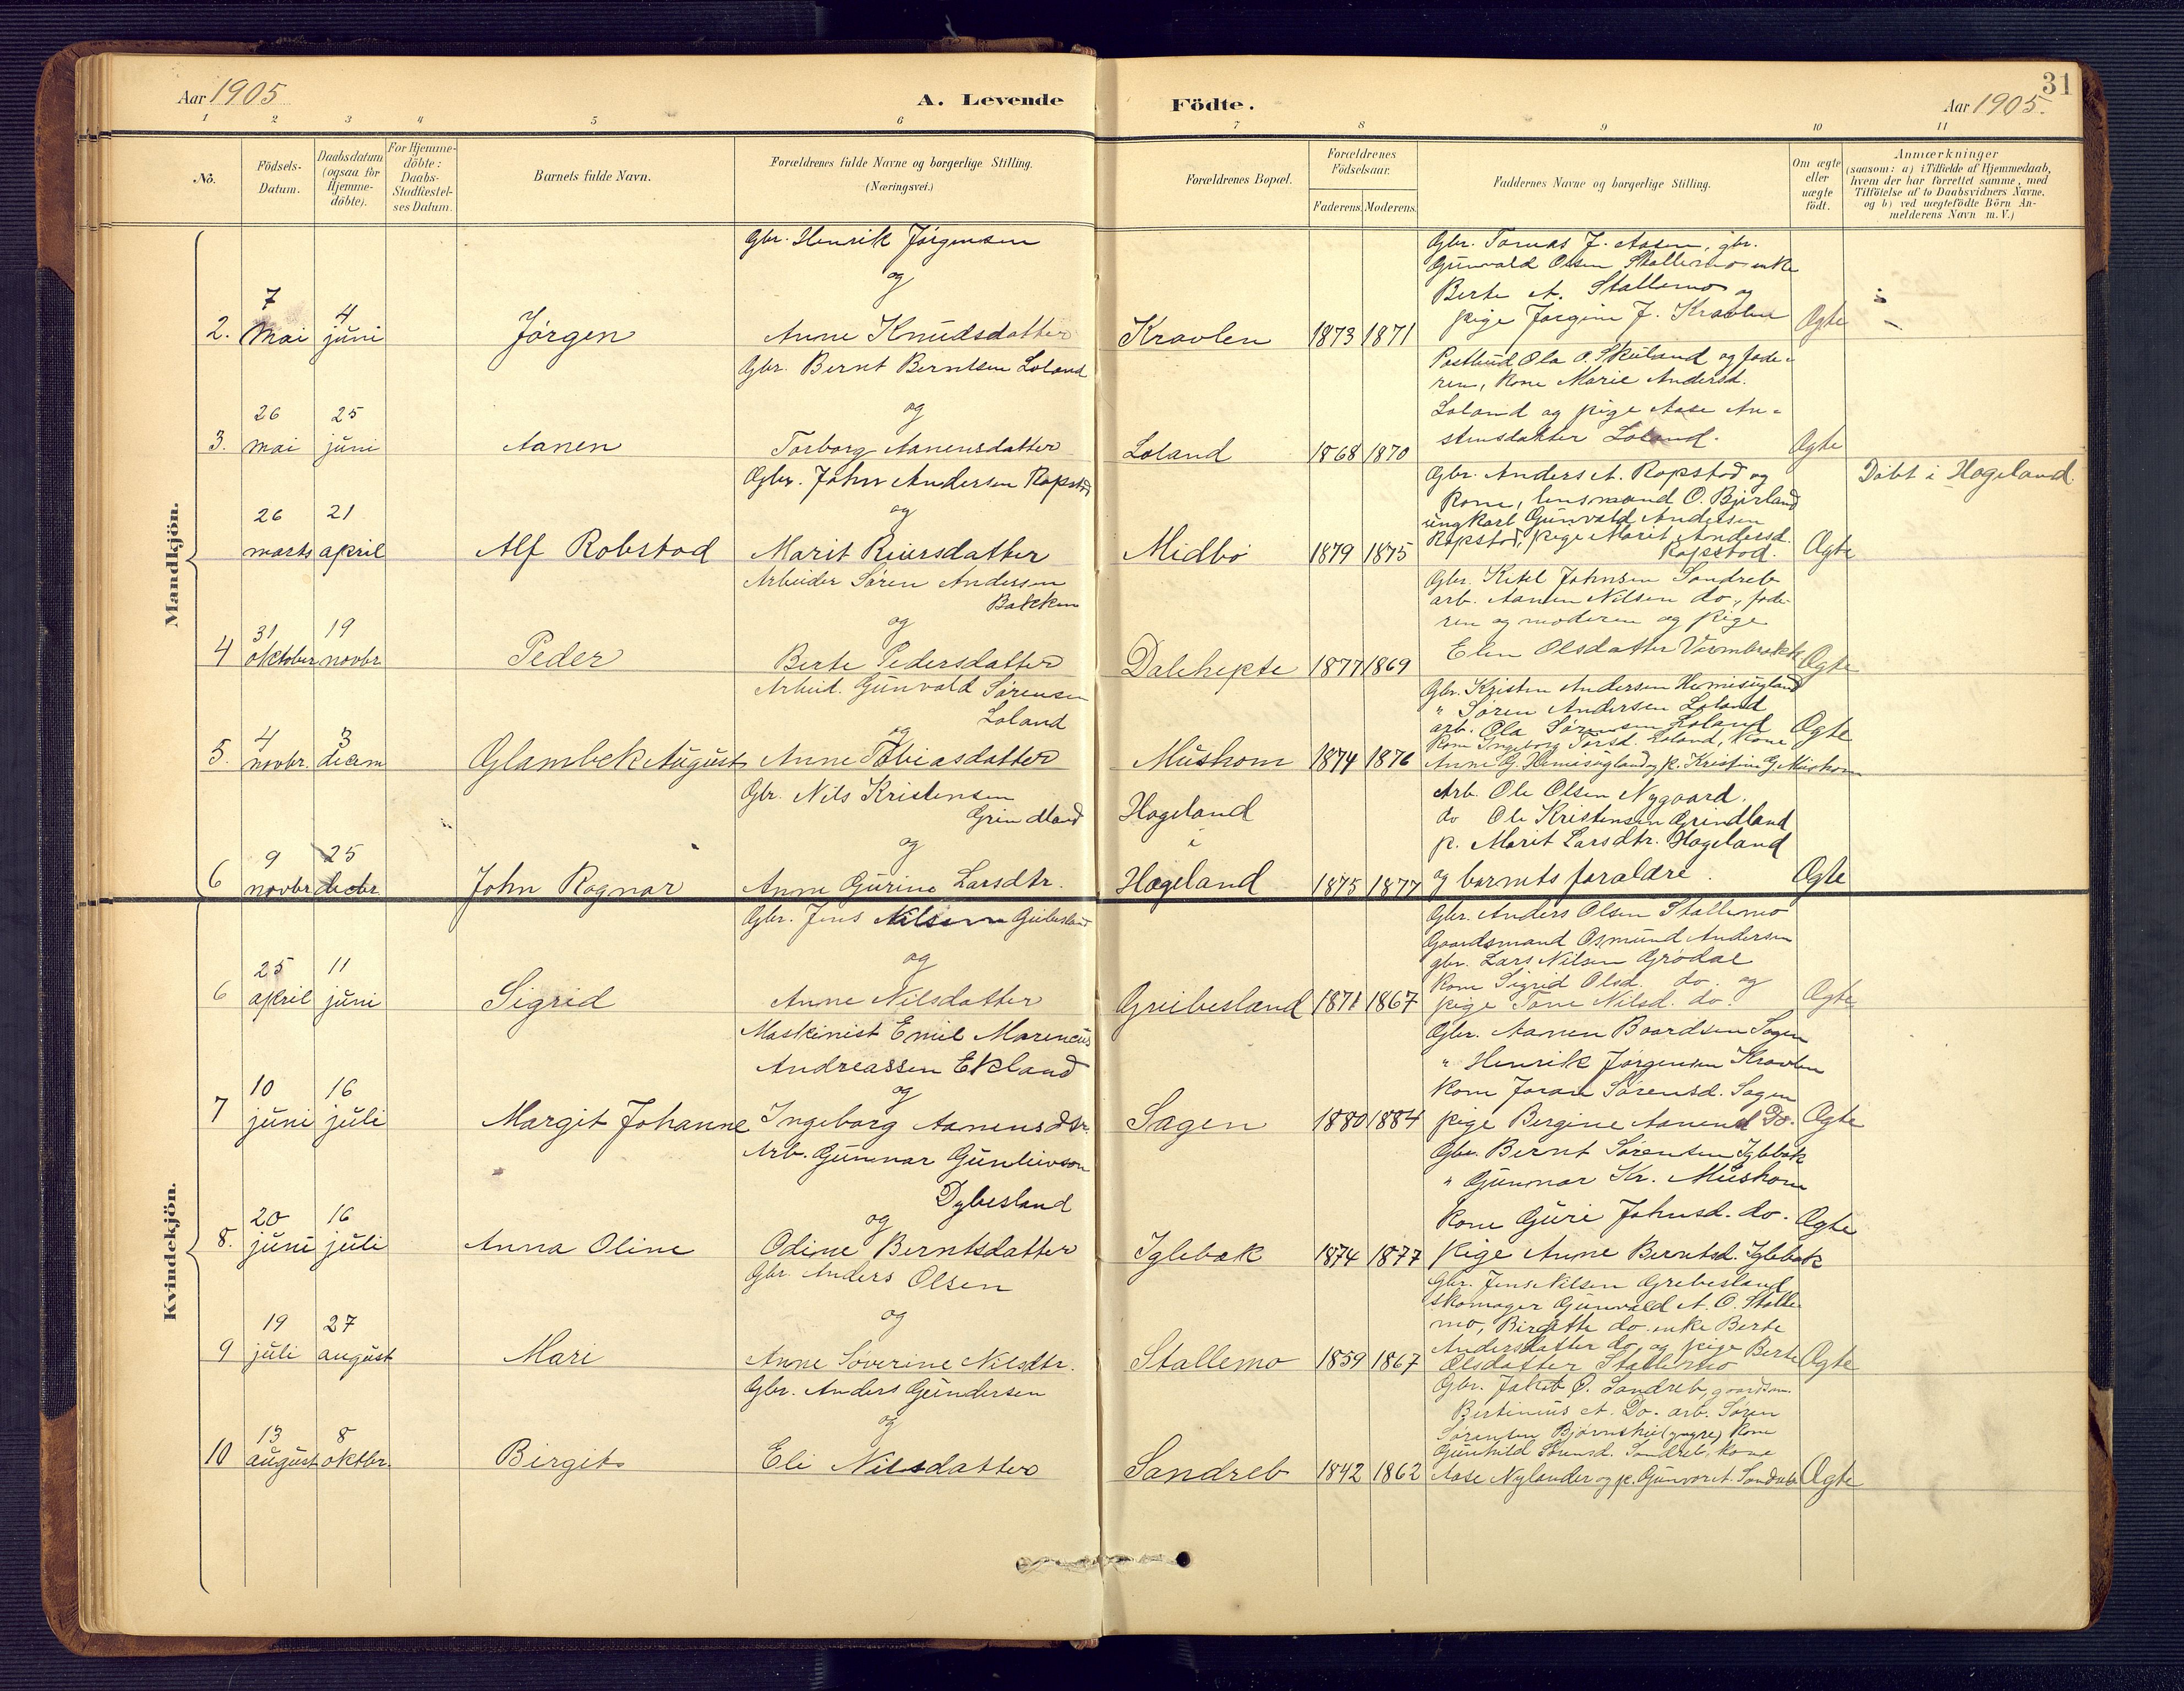 31
Aar 1905
A. Levende
Födte.
Aar 1905.
1 2 3 4 5 6 7 8 9 10 11
No.
Födsels-
Datum.
Daabsdatum
(ogsaa for
Hjemme-
döbte).
For Hjemme-
döbte:
Daabs-
Stadfæstel-
ses Datum.
Barnets fulde Navn.
Forældrenes fulde Navne og borgerlige Stilling.
(Næringsvei.)
Forældrenes Bopæl.
Forældrenes
Födselsaar.
Faderens. Moderens.
Faddernes Navne og borgerlige Stilling.
Om ægte
eller
uægte
födt.
Anmærkninger
(saasom: a) i Tilfælde af Hjemmedaab,
hvem der har forrettet samme, med
Tilföielse af to Daabsvidners Navne.
og b) ved uægtefödte Börn An-
melderens Navn m. V.)
Mandkjön.
Gbr. Henrik Jörgensen
og
Anne Knudsdatter
2. 7 mai 4 juni
Jörgen
Kravlen 1873 1871
Gbr. Tomas J. Aasen, gbr.
Gunvald Olsen Stallemo enke
Berte A. Stallemo og
pige Jorgine J. Kravlen
Ægte
Gbr. Bernt Berntsen Loland
og
Torborg Aanensdatter
3. 26 mai 25 juni
Aanen
Loland 1868 1870
Postbud Ola O. Skuland og fade-
ren, kone Marie Andersd.
Loland og pige Aase An-
stensdatter Loland.
Ægte
Gbr. John Andersen Ropstad
og
Marit Reiersdatter
26 marts 21 april
Alf Robstad
Midbö 1879 1875
Gbr. Anders A. Ropstad og
kone, lensmand O. Bjerland
ungkarl Gunvald Andersen
Ropstad, pige Marit Andersd.
Ropstad.
Ægte
Döbt i Hægeland.
Arbeider Sören Andersen
Bakken
og
Berte Pedersdatter
4 31 oktober 19 novbr
Peder
Dalehefte 1877 1869
Gbr. Ketel Johnsen Sandreb
arb. Aanen Nilsen do., fade-
ren og moderen og pige
Elen Olsdatter
Ægte
Arbeid. Gunvald Sörensen
Loland
og
Anne Tobiasdatter
5. 4 novbr. 3 decem
Glambek August
Mushom 1874 1876
Gbr. Kristen Andersen Homisugland
" Sören Andersen Loland
arb. Ola Sörensen Loland
kone Ingeborg Torsd. Loland, kone
Anne G. Homisugland og p. Kristine G. Mushom
Ægte
Gbr. Nils Kristensen
Grindland
og
Anne Gurine Larsdtr.
6 9 novbr 25 decbr.
John Ragnar
Hægeland
i
Hægeland 1875 1877
Arb. Ole Olsen Nygaard.
do Ole Kristensen Grindland
p. Marit Larsdtr. Hægeland
og barnets forældre.
Ægte
Kvindekjön.
Gbr. Jens Nilsen Greibesland
og
Anne Nilsdatter
6 25 april 11 juni
Sigrid
Greibesland 1871 1867
Gbr. Anders Olsen Stallemo
Gaardsmand Osmund Andersen
gbr. Lars Nilsen Grödal
kone Sigrid Olsd. do. og
pige Tone Nilsd. do.
Ægte
Maskinist Emil Marencius
Andreassen Ekland
og
Ingeborg Aanensdtr.
7 10 juni 16 juli
Margit Johanne
Sagen 1880 1884
Gbr. Aanen Baardsen Sagen
" Henrik Jörgensen Kravlen
kone Joran Sörensd. Sagen
pige Bergine Aanensd Do.
Ægte
Arb. Gunnar Gunleivson
Dybesland
og
Odine Berntsdatter
8. 20 juni 16 juli
Anna Oline
Iglebæk 1874 1877
Gbr. Bernt Sörensen Iglebæk
" Gunnar Kr. Mushom
kone Guri Johnsd. do.
pige Anne Berntsd. Iglebæk
Ægte
Gbr. Anders Olsen
og
Anne Söverine Nilsdtr.
9 19 juli 27 august
Mari
Stallemo 1859 1867
Gbr. Jens Nilsen Grebesland
skomager Gunvald A. O. Stalle-
mo, Birgitte do. enke Berte
Andersdatter do. og pige Berte
Olsdatter Stallemo
Ægte
Gbr. Anders Gundersen
og
Eli Nilsdatter
10 13 august 8 oktbr.
Birgit
Sandreb 1842 1862
Gbr. Jakob O. Sandreb, gaardsm.
Bertinius A. Do. arb. Sören
Sörensen (yngre) kone
Gunhild Sörensd. Sandreb kone
Aase Nylander og p. Gunvor A. Sandreb
Ægte